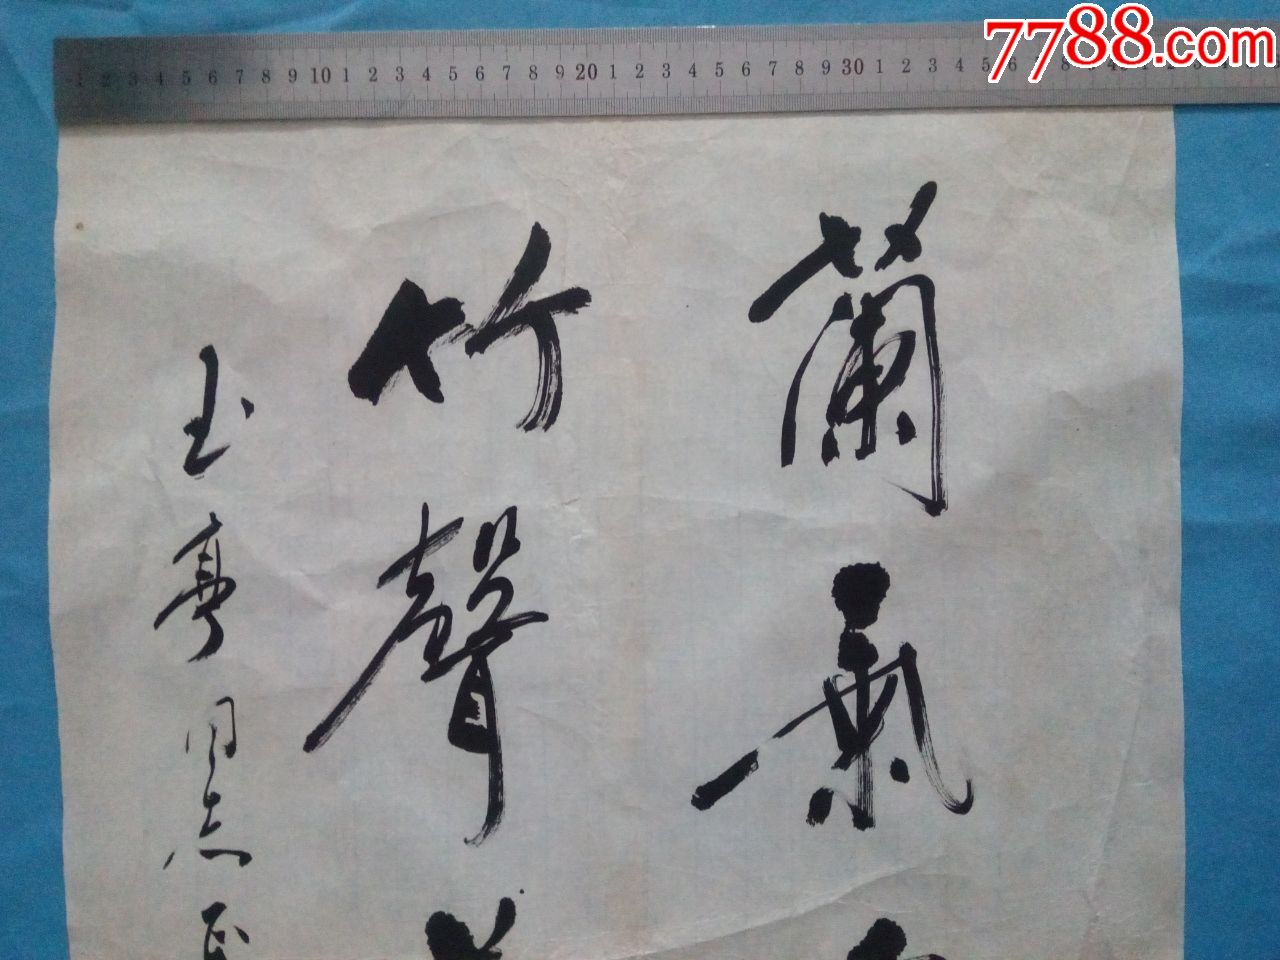 7788.com
1 2 3 4 5 6 7 8 9 10 1 2 3 4 5 6 7 8 9 20 1 2 3 4 5 6 7 8 9 30 1 2 3 4 5 6
蘭氣
竹聲
玉亭同志正